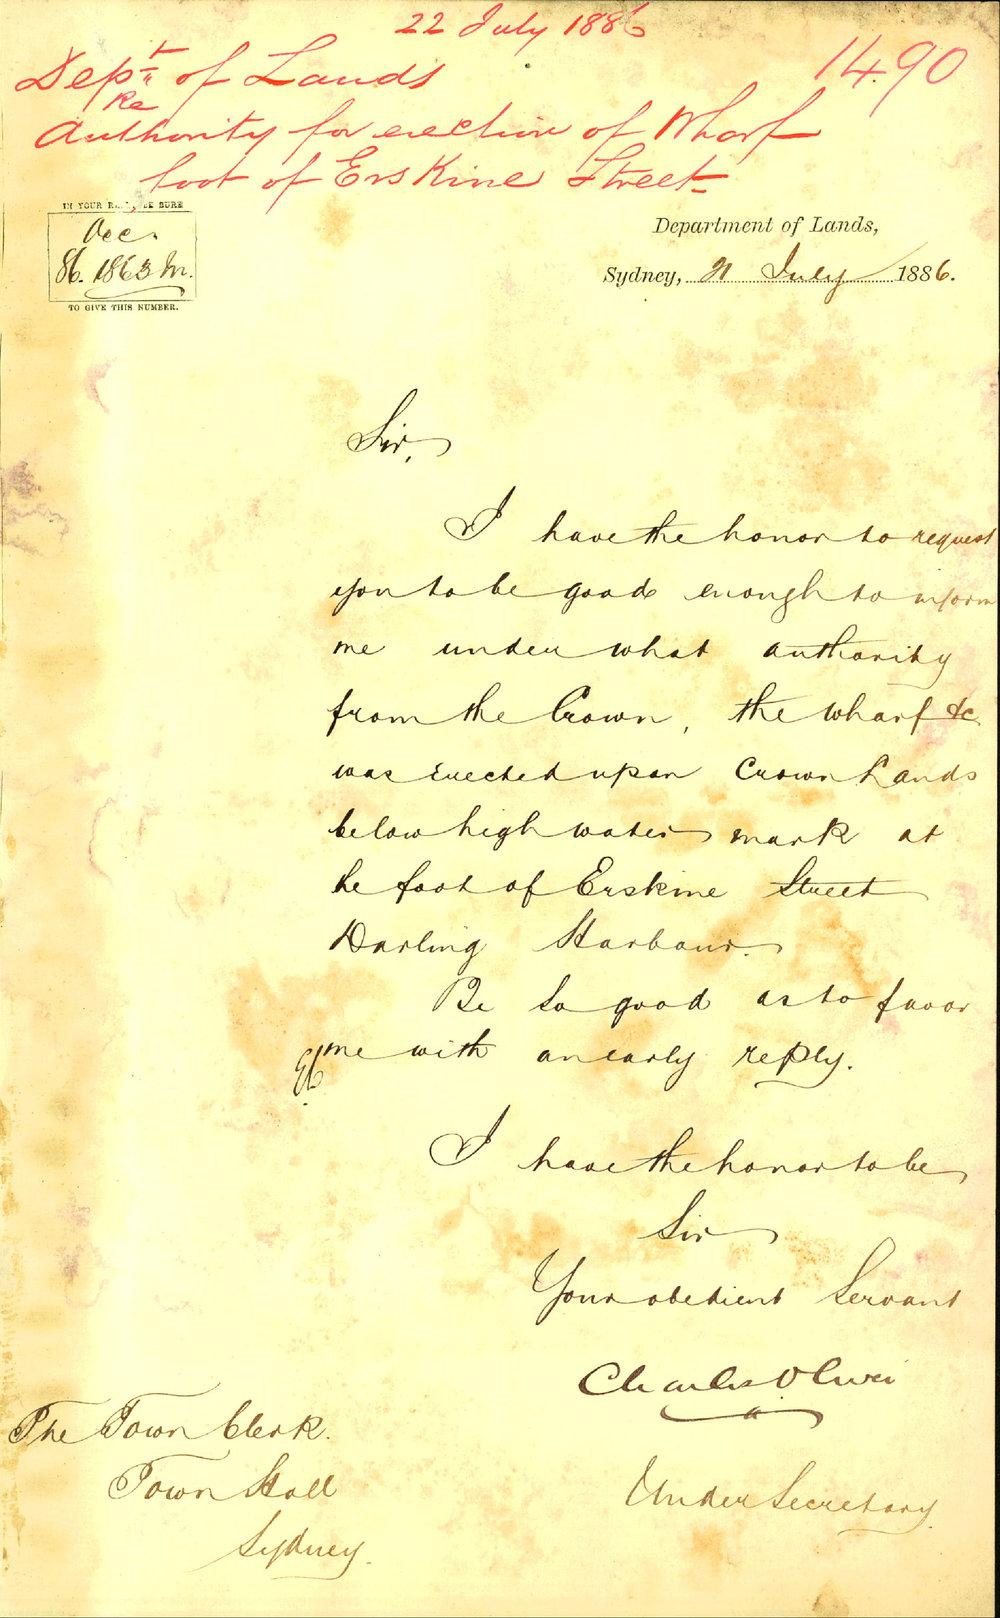 22 July 1886
1490
Dept. of Lands
Re
Authority for erection of Wharf
foot of Erskine Street
IN YOUR REPLY BE SURE
Occ.
86.1863 M.
TO GIVE THIS NUMBER.
Department of Lands,
Sydney, 21 July 1886.
Sir,
I have the honor to request
you to be good enough to inform
me under what authority
from the Crown, the wharf &c
was erected upon Crown Lands
below high water mark at
he foot of Erskine Street
Darling Harbour.
Be so good as to favor
me with an early reply.
I have the honor to be
Sir
Your obedient Servant
Charles Oliver
Under Secretary.
The Town Clerk.
Town Hall
Sydney.